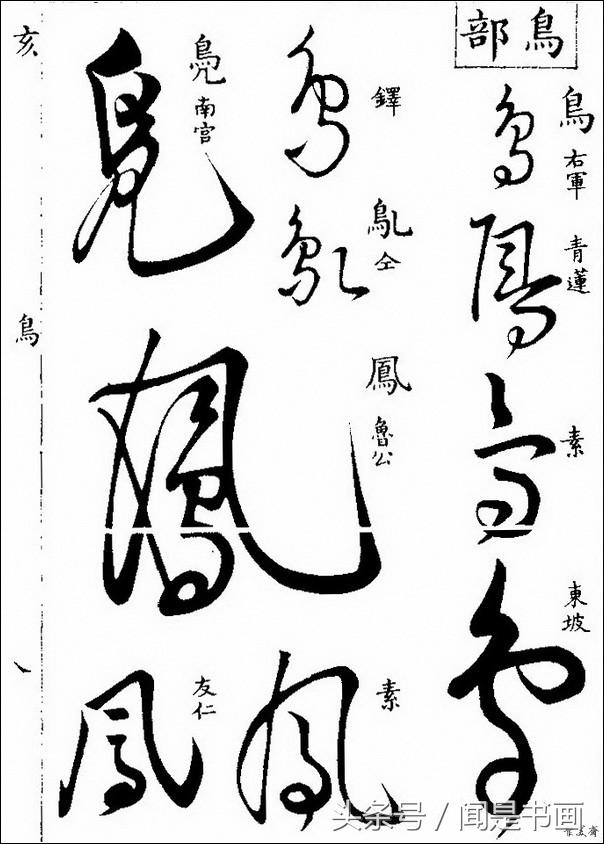 鳥部
鳥 右軍
鳥
青蓮
素
鳥
東坡
鳥
鐸
鳥
鳦 仝
鳦
鳳 魯公
鳳
素
鳳
鳧 南宮
鳧
友仁
鳳
亥
鳥
头条号 / 闻是书画